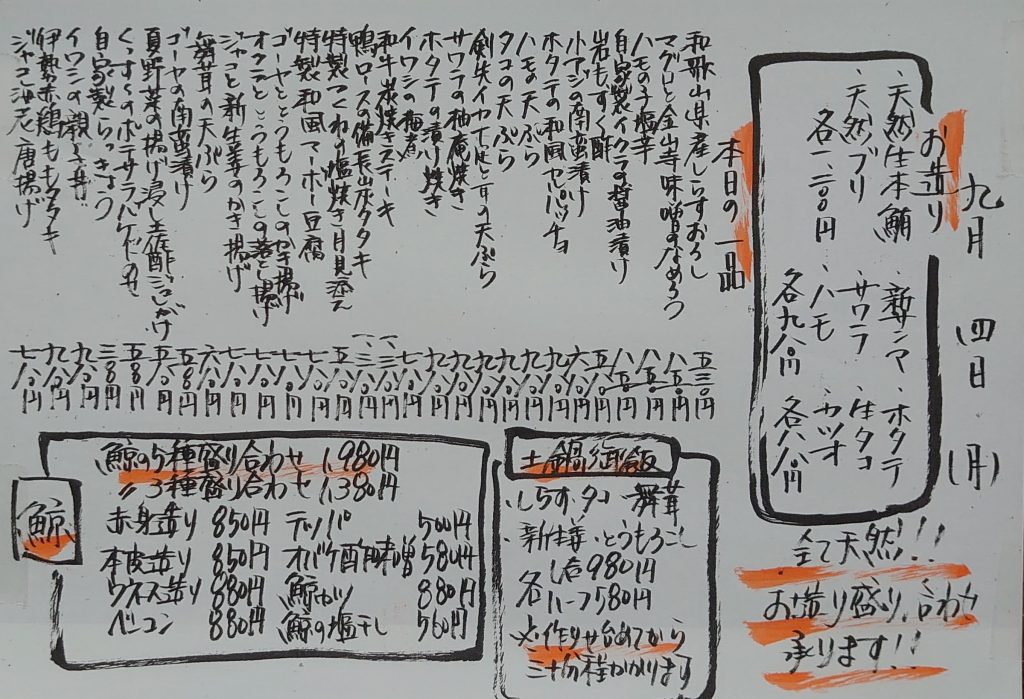 九月 四日 (月)
お造り
・天然生本鮪
・天然ブリ
各一、二〇〇円
・新サンマ
・サワラ
・ハモ
各九八〇円
・ホタテ
・生タコ
・カツオ
各八八〇円
全て天然!!
お造り盛り合わせ
承ります!!
本日の一品
和歌山県産しらすおろし 五三〇円
マグロと金山寺味噌のなめろう 八五〇円
ハモの子塩辛 八五〇円
自家製イクラの醤油漬け 八五〇円
岩もずく酢 五八〇円
小アジの南蛮漬け 六八〇円
ホタテの和風カルパッチョ 九八〇円
ハモの天ぷら 九八〇円
タコの天ぷら 九八〇円
剣先イカゲソと耳の天ぷら 九八〇円
サワラの柚庵焼き 九八〇円
ホタテの漬け焼き 九八〇円
イワシの梅煮 七八〇円
和牛炭焼きステーキ
鴨ロースの備長炭タタキ
特製つくねの塩焼き月見添え 五八〇円
特製和風マーボー豆腐
ゴーヤととうもろこしのかき揚げ
オクラととうもろこしの落とし揚げ
ジャコと新生姜のかき揚げ
舞茸の天ぷら 六八〇円
ゴーヤの南蛮漬け 五八〇円
夏野菜の揚げ浸し土佐酢ジュレがけ
くんすモのポテサラ
自家製らっきょう
イワシの親子丼 九八〇円
伊勢赤鶏ももタタキ 九八〇円
ジャコ海老唐揚げ 七八〇円
土鍋御飯
・しらす・タコ・舞茸
・新生姜・とうもろこし
各 一合 980円
ハーフ 580円
※作り始めてから
三十分程かかります
鯨
鯨の5種盛り合わせ 1,980円
〃3種盛り合わせ 1,380円
赤身造り 850円 テッパ 500円
本皮造り 850円 オバケ酢味噌 580円
ウネス造り 880円 鯨カツ 880円
ベーコン 880円 鯨の塩干し 560円